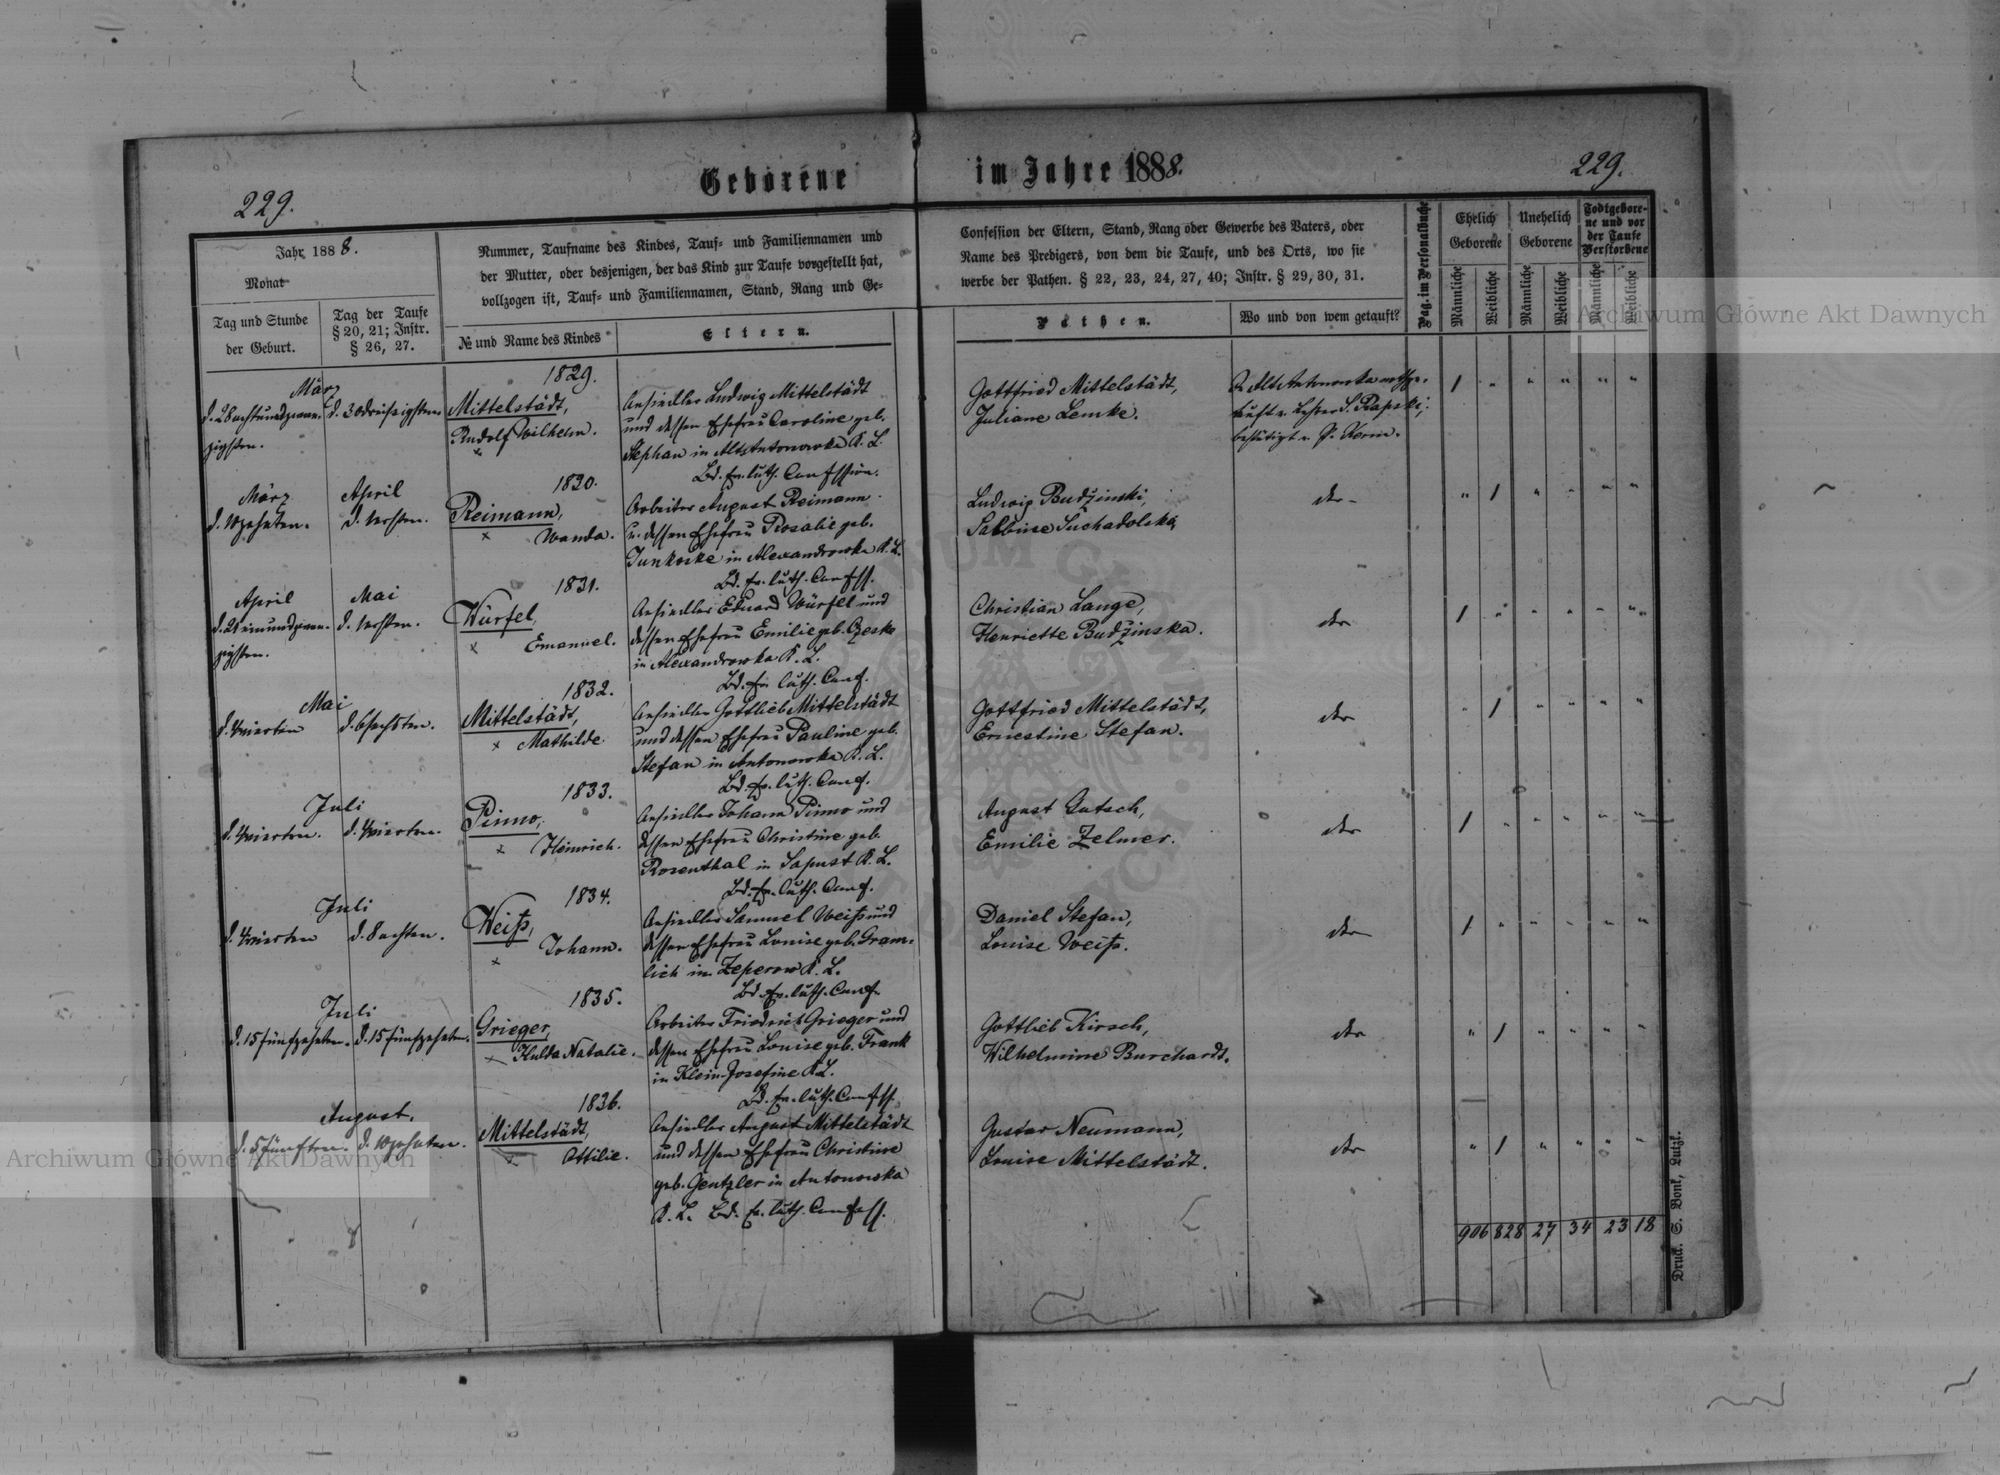 Geborene im Jahre 1888.
229.
229.
Jahr 1888.
Monat
Tag und Stunde
der Geburt.
Tag der Taufe
§ 20, 21; Instr.
§ 26, 27.
Nummer, Taufname des Kindes, Tauf- und Familiennamen und
der Mutter, oder desjenigen, der das Kind zur Taufe vorgestellt hat,
vollzogen ist, Tauf- und Familiennamen, Stand, Rang und Ge-
№ und Name des Kindes
Eltern.
Confession der Eltern, Stand, Rang oder Gewerbe des Vaters, oder
Name des Predigers, von dem die Taufe, und des Orts, wo sie
werbe der Pathen. § 22, 23, 24, 27, 40; Instr. § 29, 30, 31.
Pathen.
Wo und von wem getauft?
Pag. im Personalbuche
Ehelich
Geborene
Unehelich
Geborene
Todtgebore-
ne und vor
der Taufe
Verstorbene
Männliche
Weibliche
Männliche
Weibliche
Männliche
Weibliche
März
d. 28 achtundzwan-
zigsten.
d. 30 dreißigsten
1829.
Mittelstädt,
Rudolf Wilhelm.
Ansiedler Ludwig Mittelstädt
und dessen Ehefrau Caroline geb.
Stephan in Alt Antonowka K. L.
Bd. Ev. luth. Confession.
Gottfried Mittelstädt,
Juliane Lemke.
bestätigt v. P. Kerm.
1 " " " " "
März
d. 10 zehnten.
April
d. 1 ersten.
1830.
Reimann,
Wanda.
Arbeiter August Reimann
u. dessen Ehefrau Rosalie geb.
in Alexandrowka K. L.
Bd. Ev. luth. Confess.
Ludwig Budżinski,
Sabbine Suchadolska
dto
" 1 " " " "
April
d. 21 einundzwan-
zigsten.
Mai
d. 1 ersten.
1831.
Würfel,
Emanuel.
Ansiedler Eduard Würfel und
dessen Ehefrau Emilie geb. Czeske
in Alexandrowka K. L.
Bd. Ev. luth. Conf.
Christian Lange,
Henriette Budżinska.
dto
1 " " " " "
Mai
d. 4 vierten
d. 6 sechsten.
1832.
Mittelstädt,
Mathilde
Ansiedler Gottlieb Mittelstädt
und dessen Ehefrau Pauline geb.
Stefan in Antonowka K. L.
Bd. Ev. luth. Conf.
Gottfried Mittelstädt,
Ernestine Stefan.
dto
" 1 " " " "
Juli
d. 4 vierten.
d. 4 vierten.
1833.
Pinno,
Heinrich.
Ansiedler Johann Pinno und
dessen Ehefrau Christine geb.
Rosenthal in Sapust K. L.
Bd. Ev. luth. Conf.
August Gutsch,
Emilie Zelmer.
dto
1 " " " " "
Juli
d. 4 vierten
d. 8 achten.
1834.
Weiß,
Johann.
Ansiedler Samuel Weiß und
dessen Ehefrau Louise geb. Gram-
lich in Zeperow K. L.
Bd. Ev. luth. Conf.
Daniel Stefan,
Louise Weiß.
dto
1 " " " " "
Juli
d. 15 fünfzehnten.
d. 15 fünfzehnten.
1835.
Grieger,
Hulda Natalie.
Arbeiter Friedrich Grieger und
dessen Ehefrau Louise geb. Frank
in Klein-Josefine K. L.
Bd. Ev. luth. Confess.
Gottlieb Kirsch,
Wilhelmine Burchardt.
dto
" 1 " " " "
August.
d. 5 fünften.
d. 10 zehnten.
1836.
Mittelstädt,
Ottilie.
Ansiedler August Mittelstädt
und dessen Ehefrau Christine
geb. Gentzler in Antonowka
K. L. Bd. Ev. luth. Confess.
Gustav Neumann,
Louise Mittelstädt.
dto
" 1 " " " "
906 828 27 34 23 18
Druck. S. Bonk, Lutzk.
Archiwum Główne Akt Dawnych
Archiwum Główne Akt Dawnych